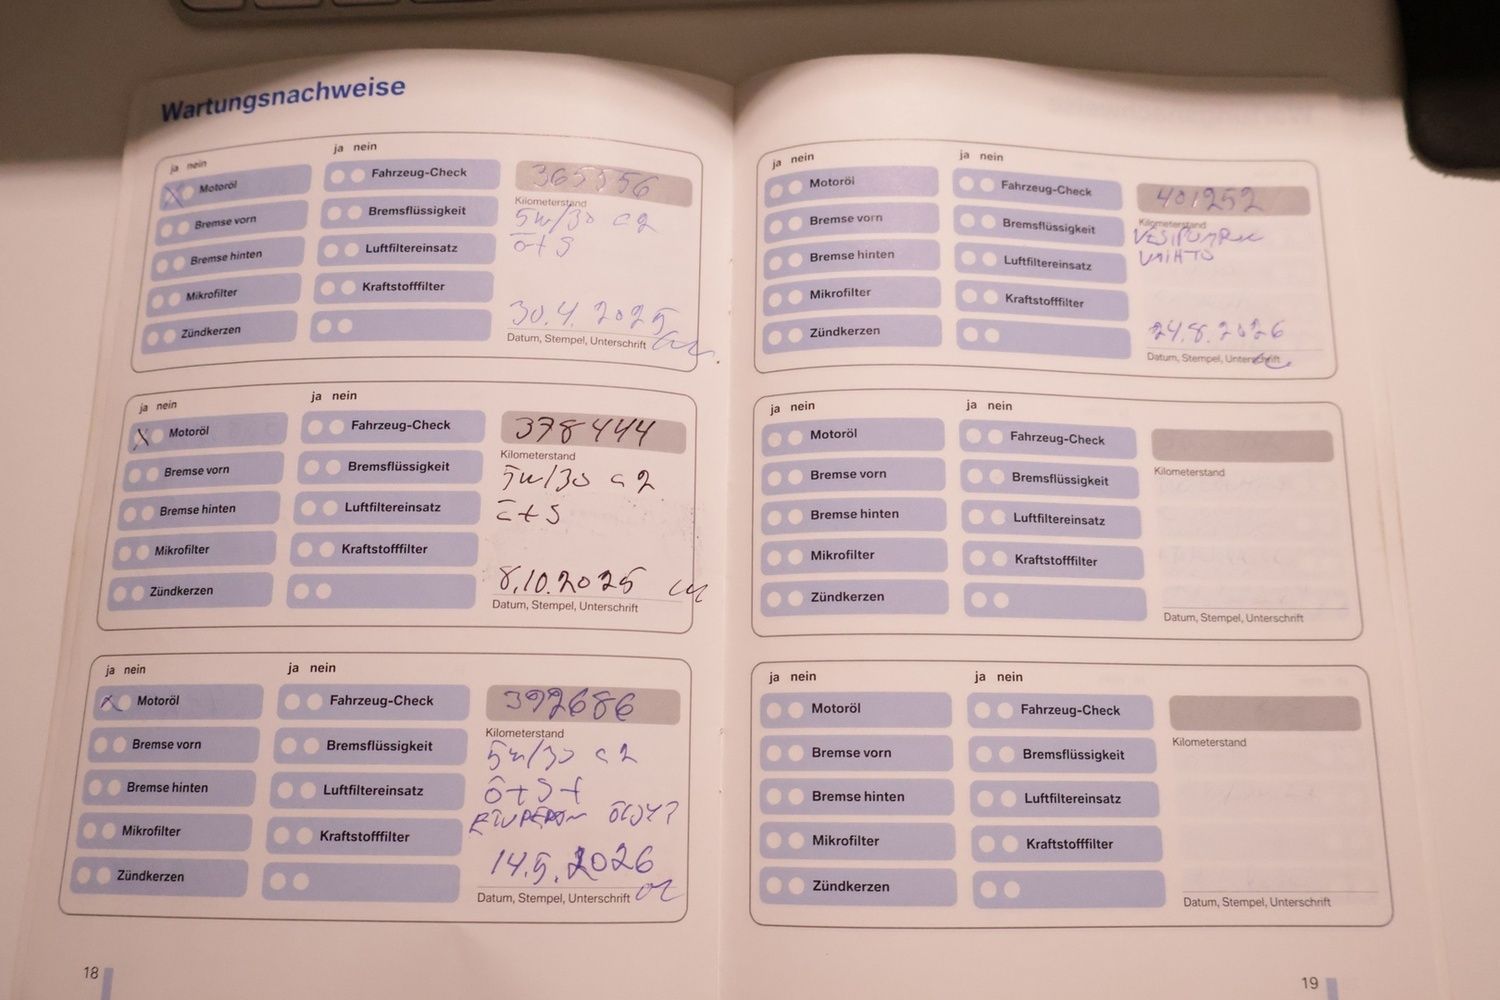 Wartungsnachweise
ja nein
ja nein
Motoröl
Fahrzeug-Check
365556
Kilometerstand
Bremse vorn
Bremsflüssigkeit
5w/30 c2
ö+s
Bremse hinten
Luftfiltereinsatz
Mikrofilter
Kraftstofffilter
30.4.2025
Zündkerzen
Datum, Stempel, Unterschrift
ja nein
ja nein
Motoröl
Fahrzeug-Check
378444
Kilometerstand
Bremse vorn
Bremsflüssigkeit
5w/30 c2
ö+s
Bremse hinten
Luftfiltereinsatz
Mikrofilter
Kraftstofffilter
8.10.2025
Zündkerzen
Datum, Stempel, Unterschrift
ja nein
ja nein
Motoröl
Fahrzeug-Check
392686
Kilometerstand
Bremse vorn
Bremsflüssigkeit
5w/30 c2
ö+s+
Bremse hinten
Luftfiltereinsatz
Mikrofilter
Kraftstofffilter
14.5.2026
Zündkerzen
Datum, Stempel, Unterschrift
18
ja nein
ja nein
Motoröl
Fahrzeug-Check
401252
Kilometerstand
Bremse vorn
Bremsflüssigkeit
VESIPUMPUN
VAIHTO
Bremse hinten
Luftfiltereinsatz
Mikrofilter
Kraftstofffilter
24.8.2026
Zündkerzen
Datum, Stempel, Unterschrift
ja nein
ja nein
Motoröl
Fahrzeug-Check
Kilometerstand
Bremse vorn
Bremsflüssigkeit
Bremse hinten
Luftfiltereinsatz
Mikrofilter
Kraftstofffilter
Zündkerzen
Datum, Stempel, Unterschrift
ja nein
ja nein
Motoröl
Fahrzeug-Check
Kilometerstand
Bremse vorn
Bremsflüssigkeit
Bremse hinten
Luftfiltereinsatz
Mikrofilter
Kraftstofffilter
Zündkerzen
Datum, Stempel, Unterschrift
19